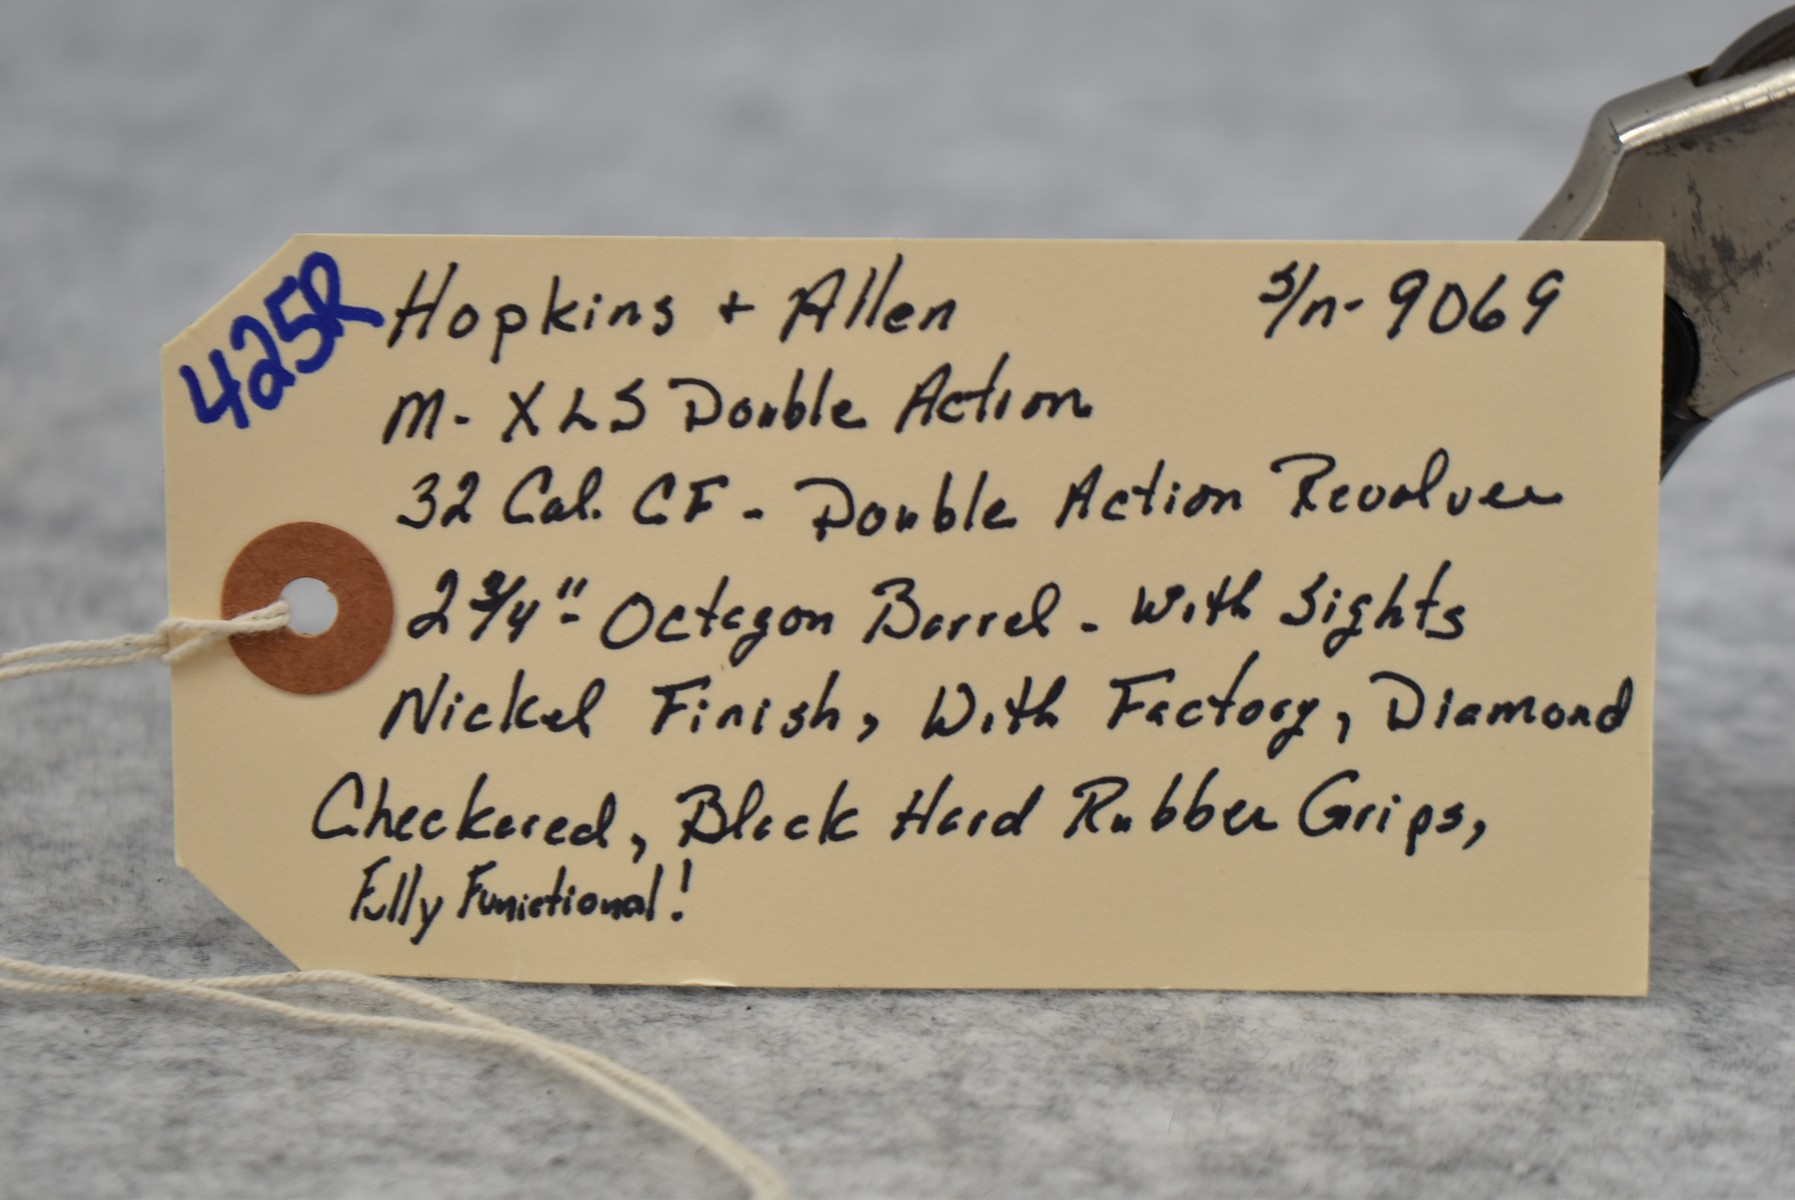 425R
Hopkins + Allen S/n- 9069
M- XLS Double Action
32 Cal. CF - Double Action Revolver
2 3/4"- Octagon Barrel - With Sights
Nickel Finish, With Factory, Diamond
Checkered, Black Hard Rubber Grips,
Fully Funictional!